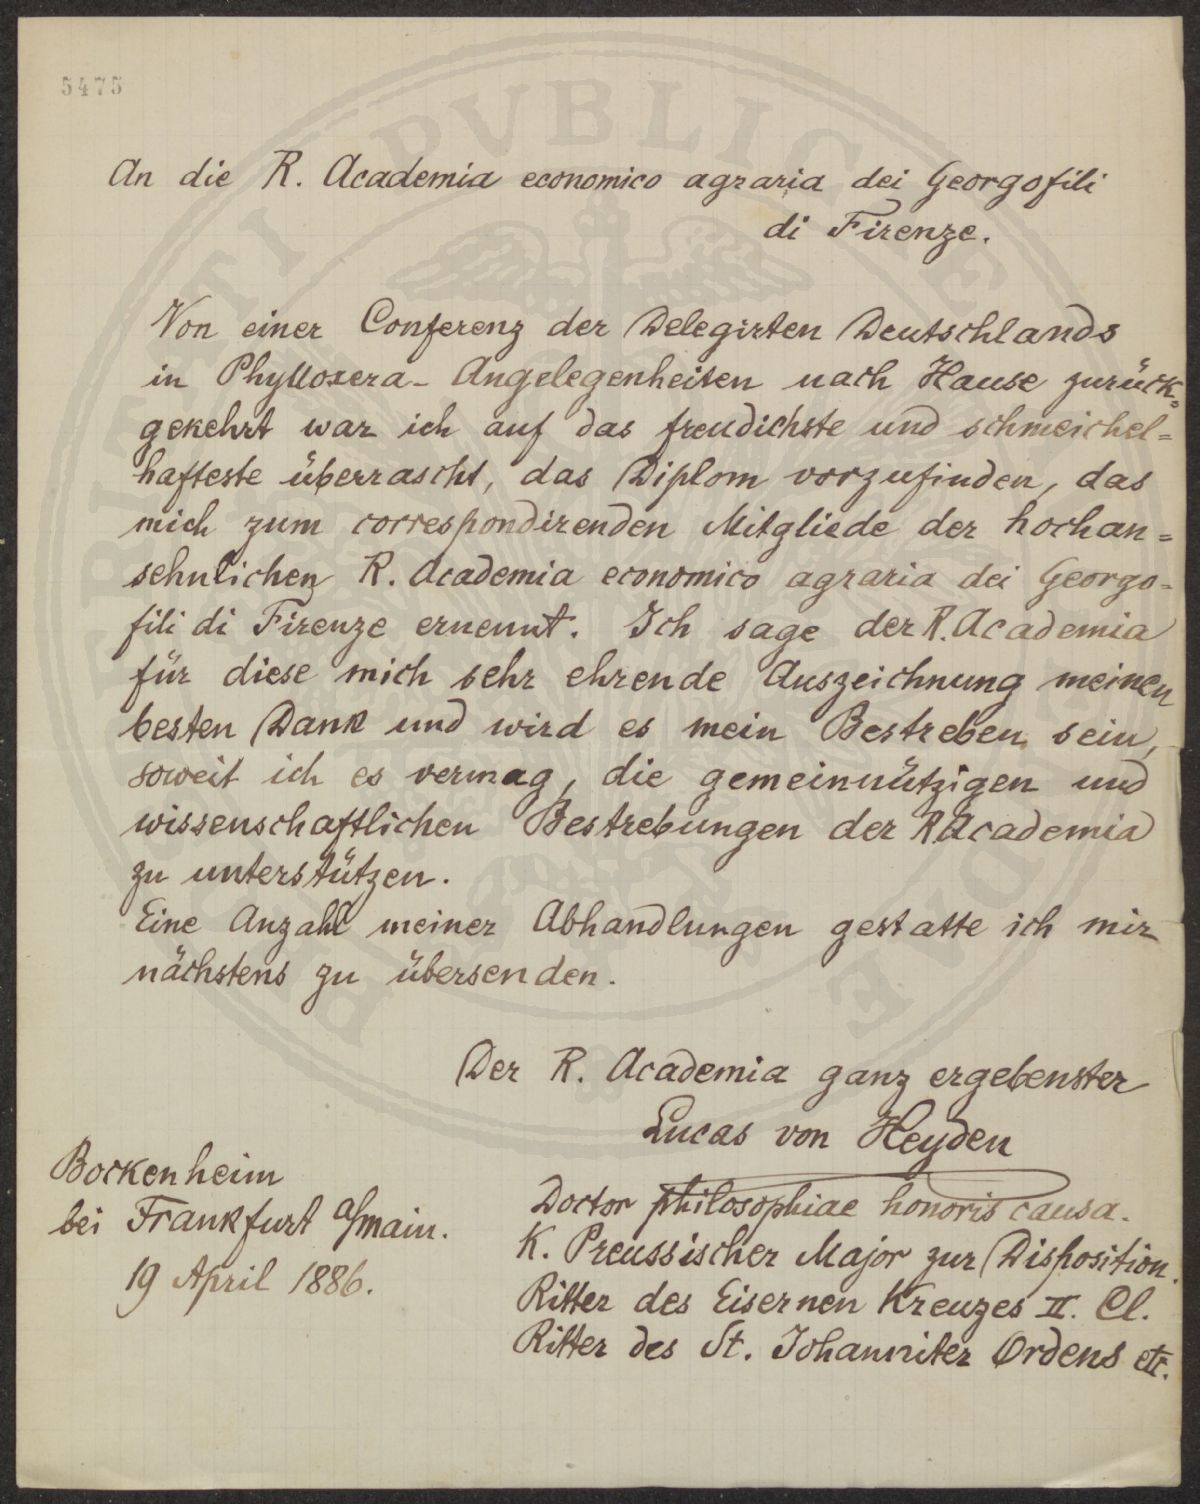 5475
An die R. Academia economico agraria dei Georgofili
di Firenze.
Von einer Conferenz der Delegirten Deutschlands
in Phylloxera-Angelegenheiten nach Hause zurück=
gekehrt war ich auf das freudichste und schmeichel=
hafteste überrascht, das Diplom vorzufinden, das
mich zum correspondirenden Mitgliede der hochan=
sehnlichen R. Academia economico agraria dei Georgo=
fili di Firenze ernennt. Ich sage der R. Academia
für diese mich sehr ehrende Auszeichnung meinen
besten Dank und wird es mein Bestreben sein,
soweit ich es vermag, die gemeinnützigen und
wissenschaftlichen Bestrebungen der R. Academia
zu unterstützen.
Eine Anzahl meiner Abhandlungen gestatte ich mir
nächstens zu übersenden.
Der R. Academia ganz ergebenster
Lucas von Heyden
Doctor philosophiae honoris causa.
K. Preussischer Major zur Disposition.
Ritter des Eisernen Kreuzes II. Cl.
Ritter des St. Johanniter Ordens etc.
Bockenheim
bei Frankfurt a/main.
19 April 1886.